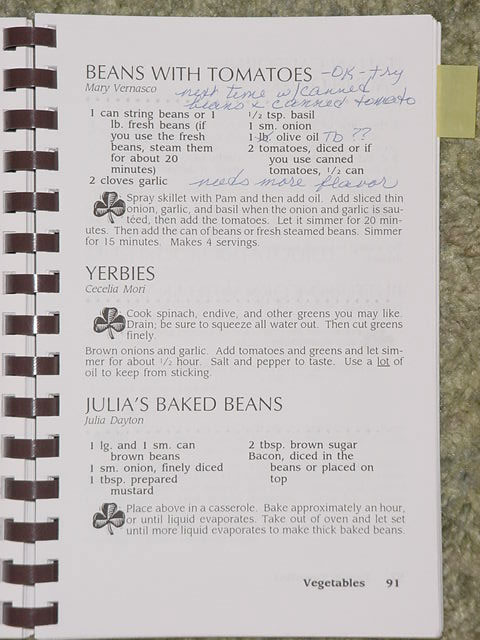 BEANS WITH TOMATOES -OK-try
Mary Vernasco next time w/canned
beans & canned tomato
1 can string beans or 1
lb. fresh beans (if
you use the fresh
beans, steam them
for about 20
minutes)
2 cloves garlic
1/2 tsp. basil
1 sm. onion
1 lb. olive oil TD ??
2 tomatoes, diced or if
you use canned
tomatoes, 1/2 can
needs more flavor
Spray skillet with Pam and then add oil. Add sliced thin
onion, garlic, and basil when the onion and garlic is sau-
teed, then add the tomatoes. Let it simmer for 20 min-
utes. Then add the can of beans or fresh steamed beans. Simmer
for 15 minutes. Makes 4 servings.
YERBIES
Cecelia Mori
Cook spinach, endive, and other greens you may like.
Drain; be sure to squeeze all water out. Then cut greens
finely.
Brown onions and garlic. Add tomatoes and greens and let sim-
mer for about 1/2 hour. Salt and pepper to taste. Use a lot of
oil to keep from sticking.
JULIA'S BAKED BEANS
Julia Dayton
1 lg. and 1 sm. can
brown beans
1 sm. onion, finely diced
1 tbsp. prepared
mustard
2 tbsp. brown sugar
Bacon, diced in the
beans or placed on
top
Place above in a casserole. Bake approximately an hour,
or until liquid evaporates. Take out of oven and let set
until more liquid evaporates to make thick baked beans.
Vegetables 91